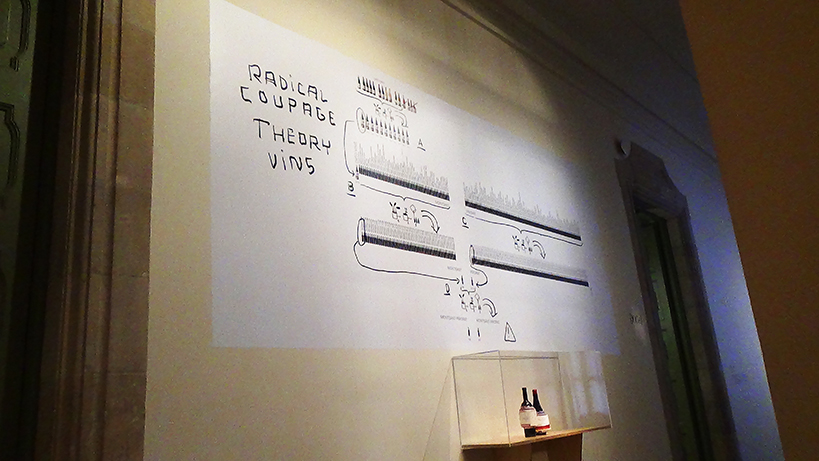 RADICAL
COUPAGE
THEORY
VINS
A
B
C
D